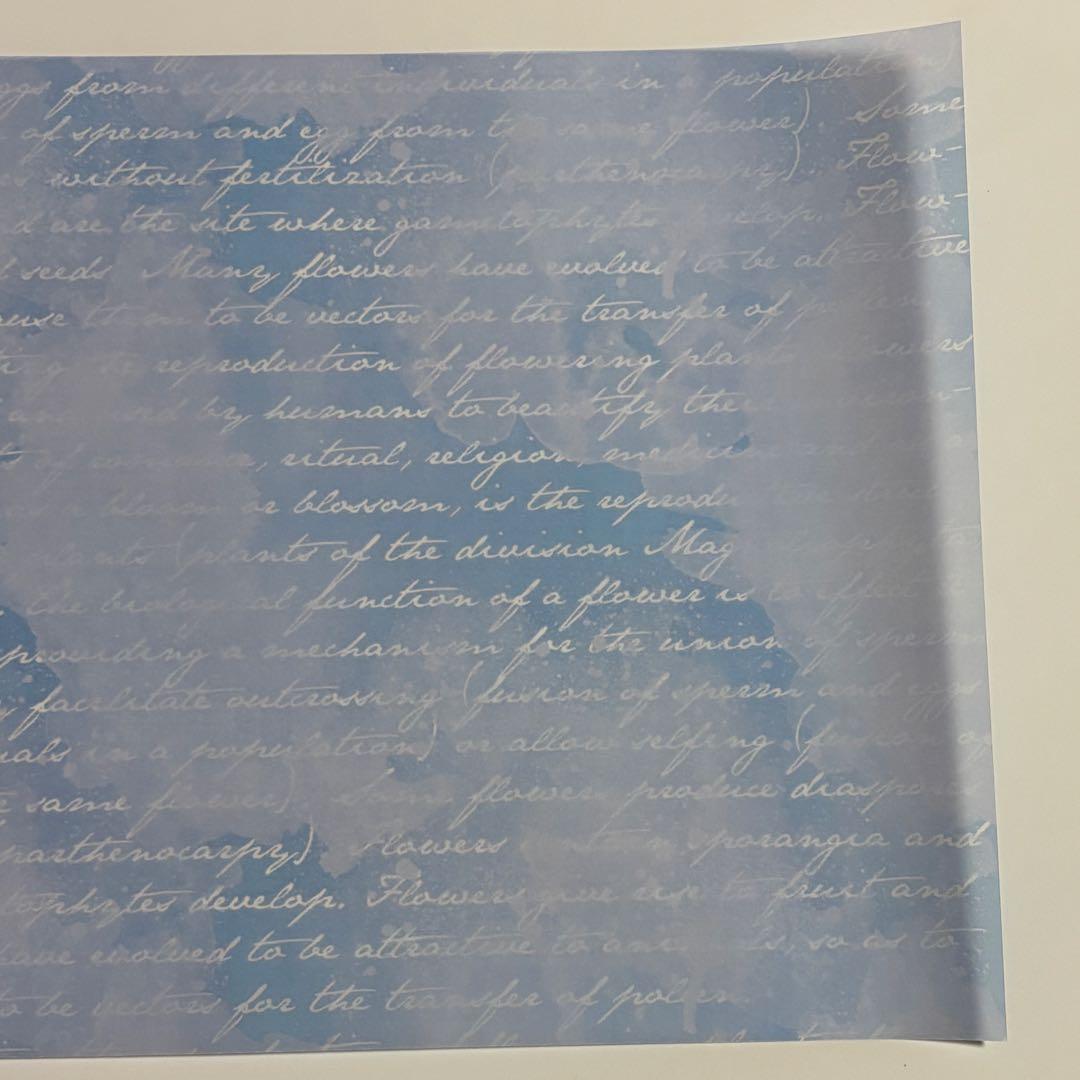 eggs from different individuals in a population)
of sperm and egg from the same flower). Some
without fertilization (parthenocarpy). Flow-
d are the site where gametophytes develop. Flow-
seeds Many flowers have evolved to be attractive
use them to be vectors for the transfer of pollen.
the reproduction of flowering plan
by humans to beautify the
of romance, ritual, religion, medicin
bloom or blossom, is the reprodu
plants (plants of the division Mag
the biological function of a flower is to effect
providing a mechanism for the union of sperm
facilitate outcrossing (fusion of sperm and eggs
uals in a population) or allow selfing (fusion of
same flower). Some flowers produce diaspores
parthenocarpy) Flowers contain sporangia and
tophytes develop. Flowers give rise to fruit and
have evolved to be attractive to ani s, so as to
to be vectors for the transfer of pollen.